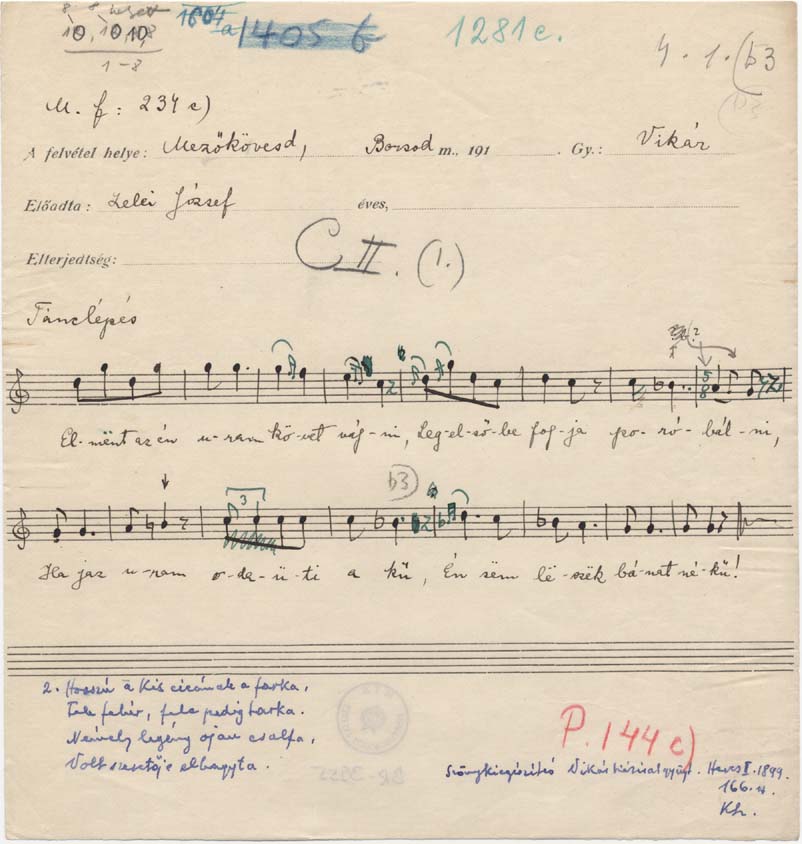 1604
a
1405 b
1281 c.
10, 10 10,8
1-8
4. 1. (b3
M. f: 234 c)
A felvétel helye: Mezőkövesd, Borsod m., 191 . Gy.: Vikár
Előadta: Lelei József éves,
Elterjedtség:
C II. (1.)
Tánclépés
El-mënt az én u-ram kö-vet vág-ni, Leg-el-ső-be fog-ja po-ró-bál-ni,
b3
3
Ha jaz u-ram o-da-ü-ti a kü, Én sëm lë-szëk bá-nat né-kű!
2. Hosszú a kis cicának a farka,
Fele fehér, fele pedig tarka.
Némely legény ojan csalfa,
Volt szeretője elhagyta.
P. 144 c)
Szövegkiegészítés Vikár kéziratgyűjt. Heves II. 1899.
166. sz.